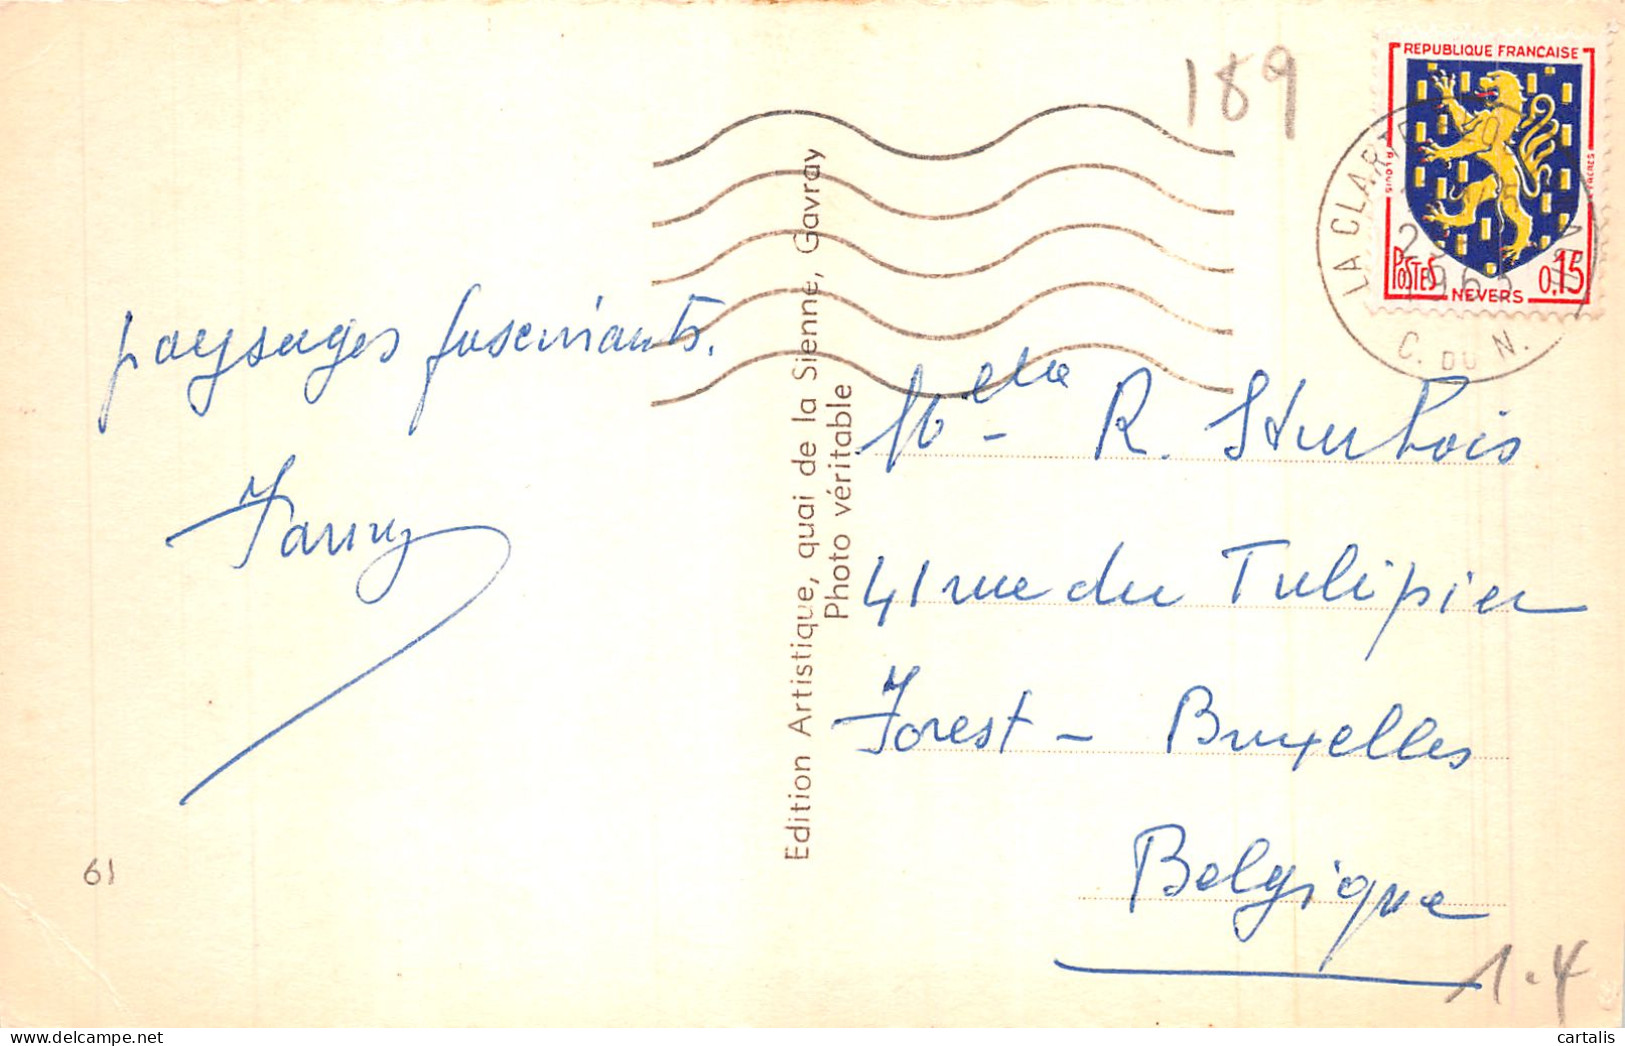 189
REPUBLIQUE FRANCAISE
POSTES
0,15
NEVERS
LA CLARTE
1963
C. DU N.
paysages fascinants.
Fanny
61
Edition Artistique, quai de la Sienne, Gavray
Photo véritable
R. Sturbois
41 rue du Tulipier
Forest - Bruxelles
Belgique
1.4
cartalis